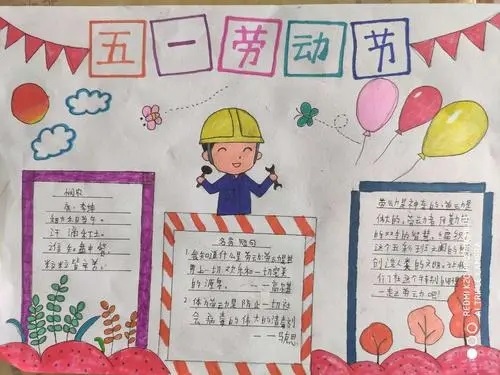 五一劳动节
悯农
唐·李绅
锄禾日当午。
汗滴禾下土。
谁知盘中餐。
粒粒皆辛苦。
名言 短句
1. 我知道什么是劳动:劳动是世
界上一切欢乐和一切完美
的源泉。 ——高尔基
2. 体力劳动是防止一切社
会病毒的伟大的消毒剂
——马克思
劳动是神奇的,劳动是
伟大的,劳动者用勤劳
的双手和智慧,编织
这个五彩
创造人类的文明。
们在这个
一起劳动吧!
REDMI K20